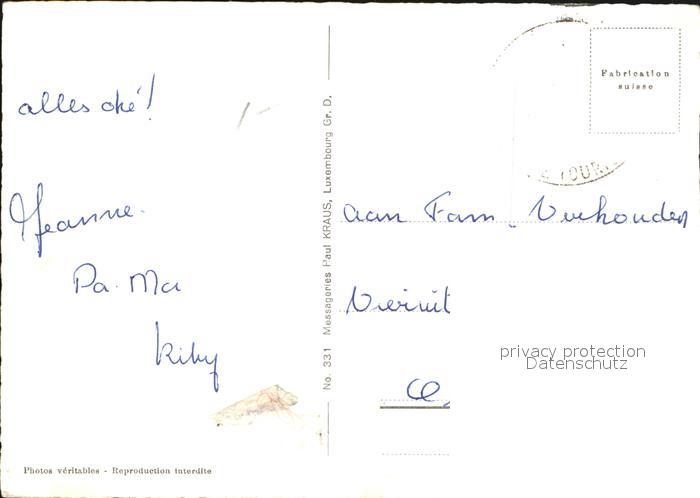 Fabrication
suisse
alles oké!
Jeanne.
Pa. Ma
Kiky
No. 331 Messageries Paul KRAUS, Luxembourg Gr. D.
TOUR
aan Fam. Verhouden
privacy protection
Datenschutz
Photos véritables - Reproduction interdite